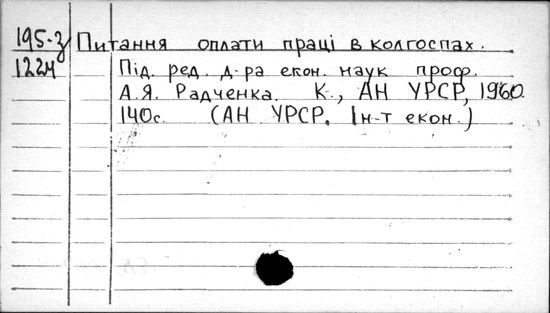 195-з Питання оплати праці в колгоспах.
1224 Під. ред. д-ра екон. наук проф.
А.Я. Радченка. К., АН УРСР, 1960.
140с. (АН УРСР. Ін-т екон.)